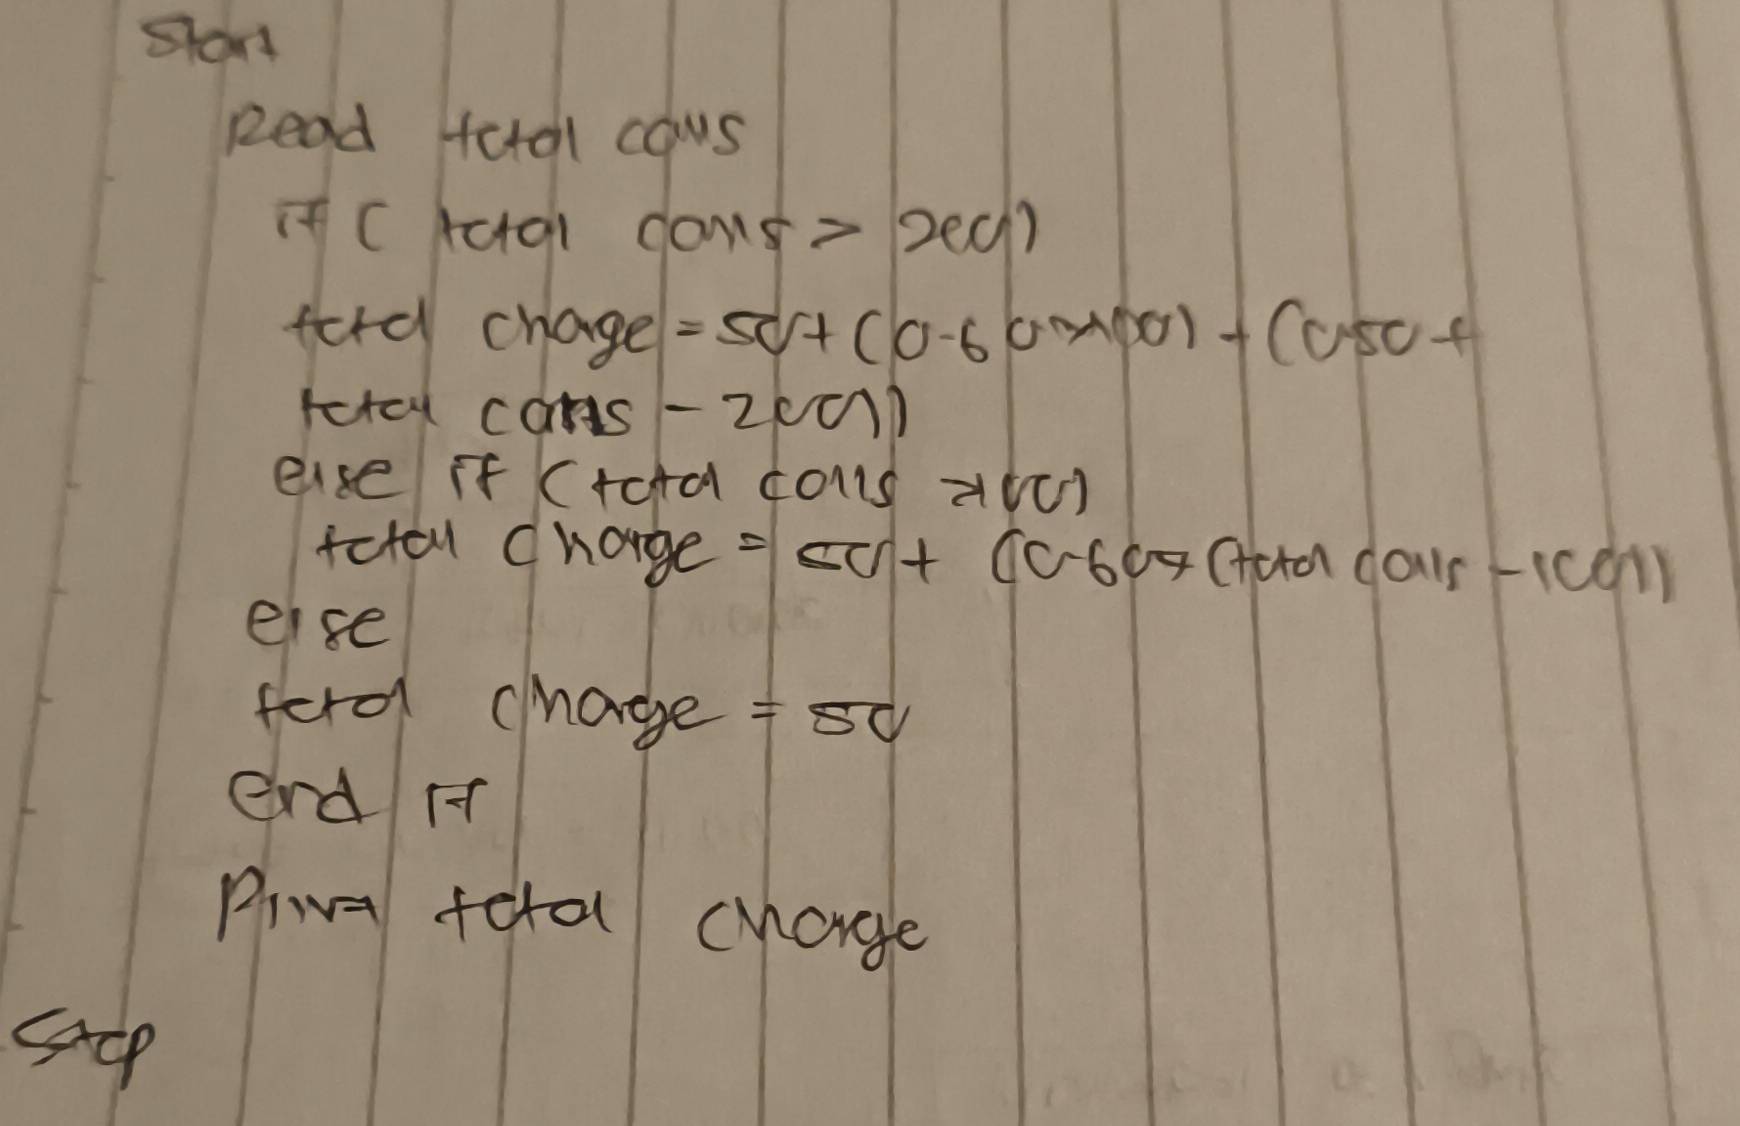 Start
Read total calls
if ( total calls > 200)
total charge = 50 + (0.60 * 100) + (0.50 *
total calls - 200))
else if (total calls > 100)
total charge = 50 + (0.60 * (total calls - 100))
else
total charge = 50
end if
Print total charge
Stop